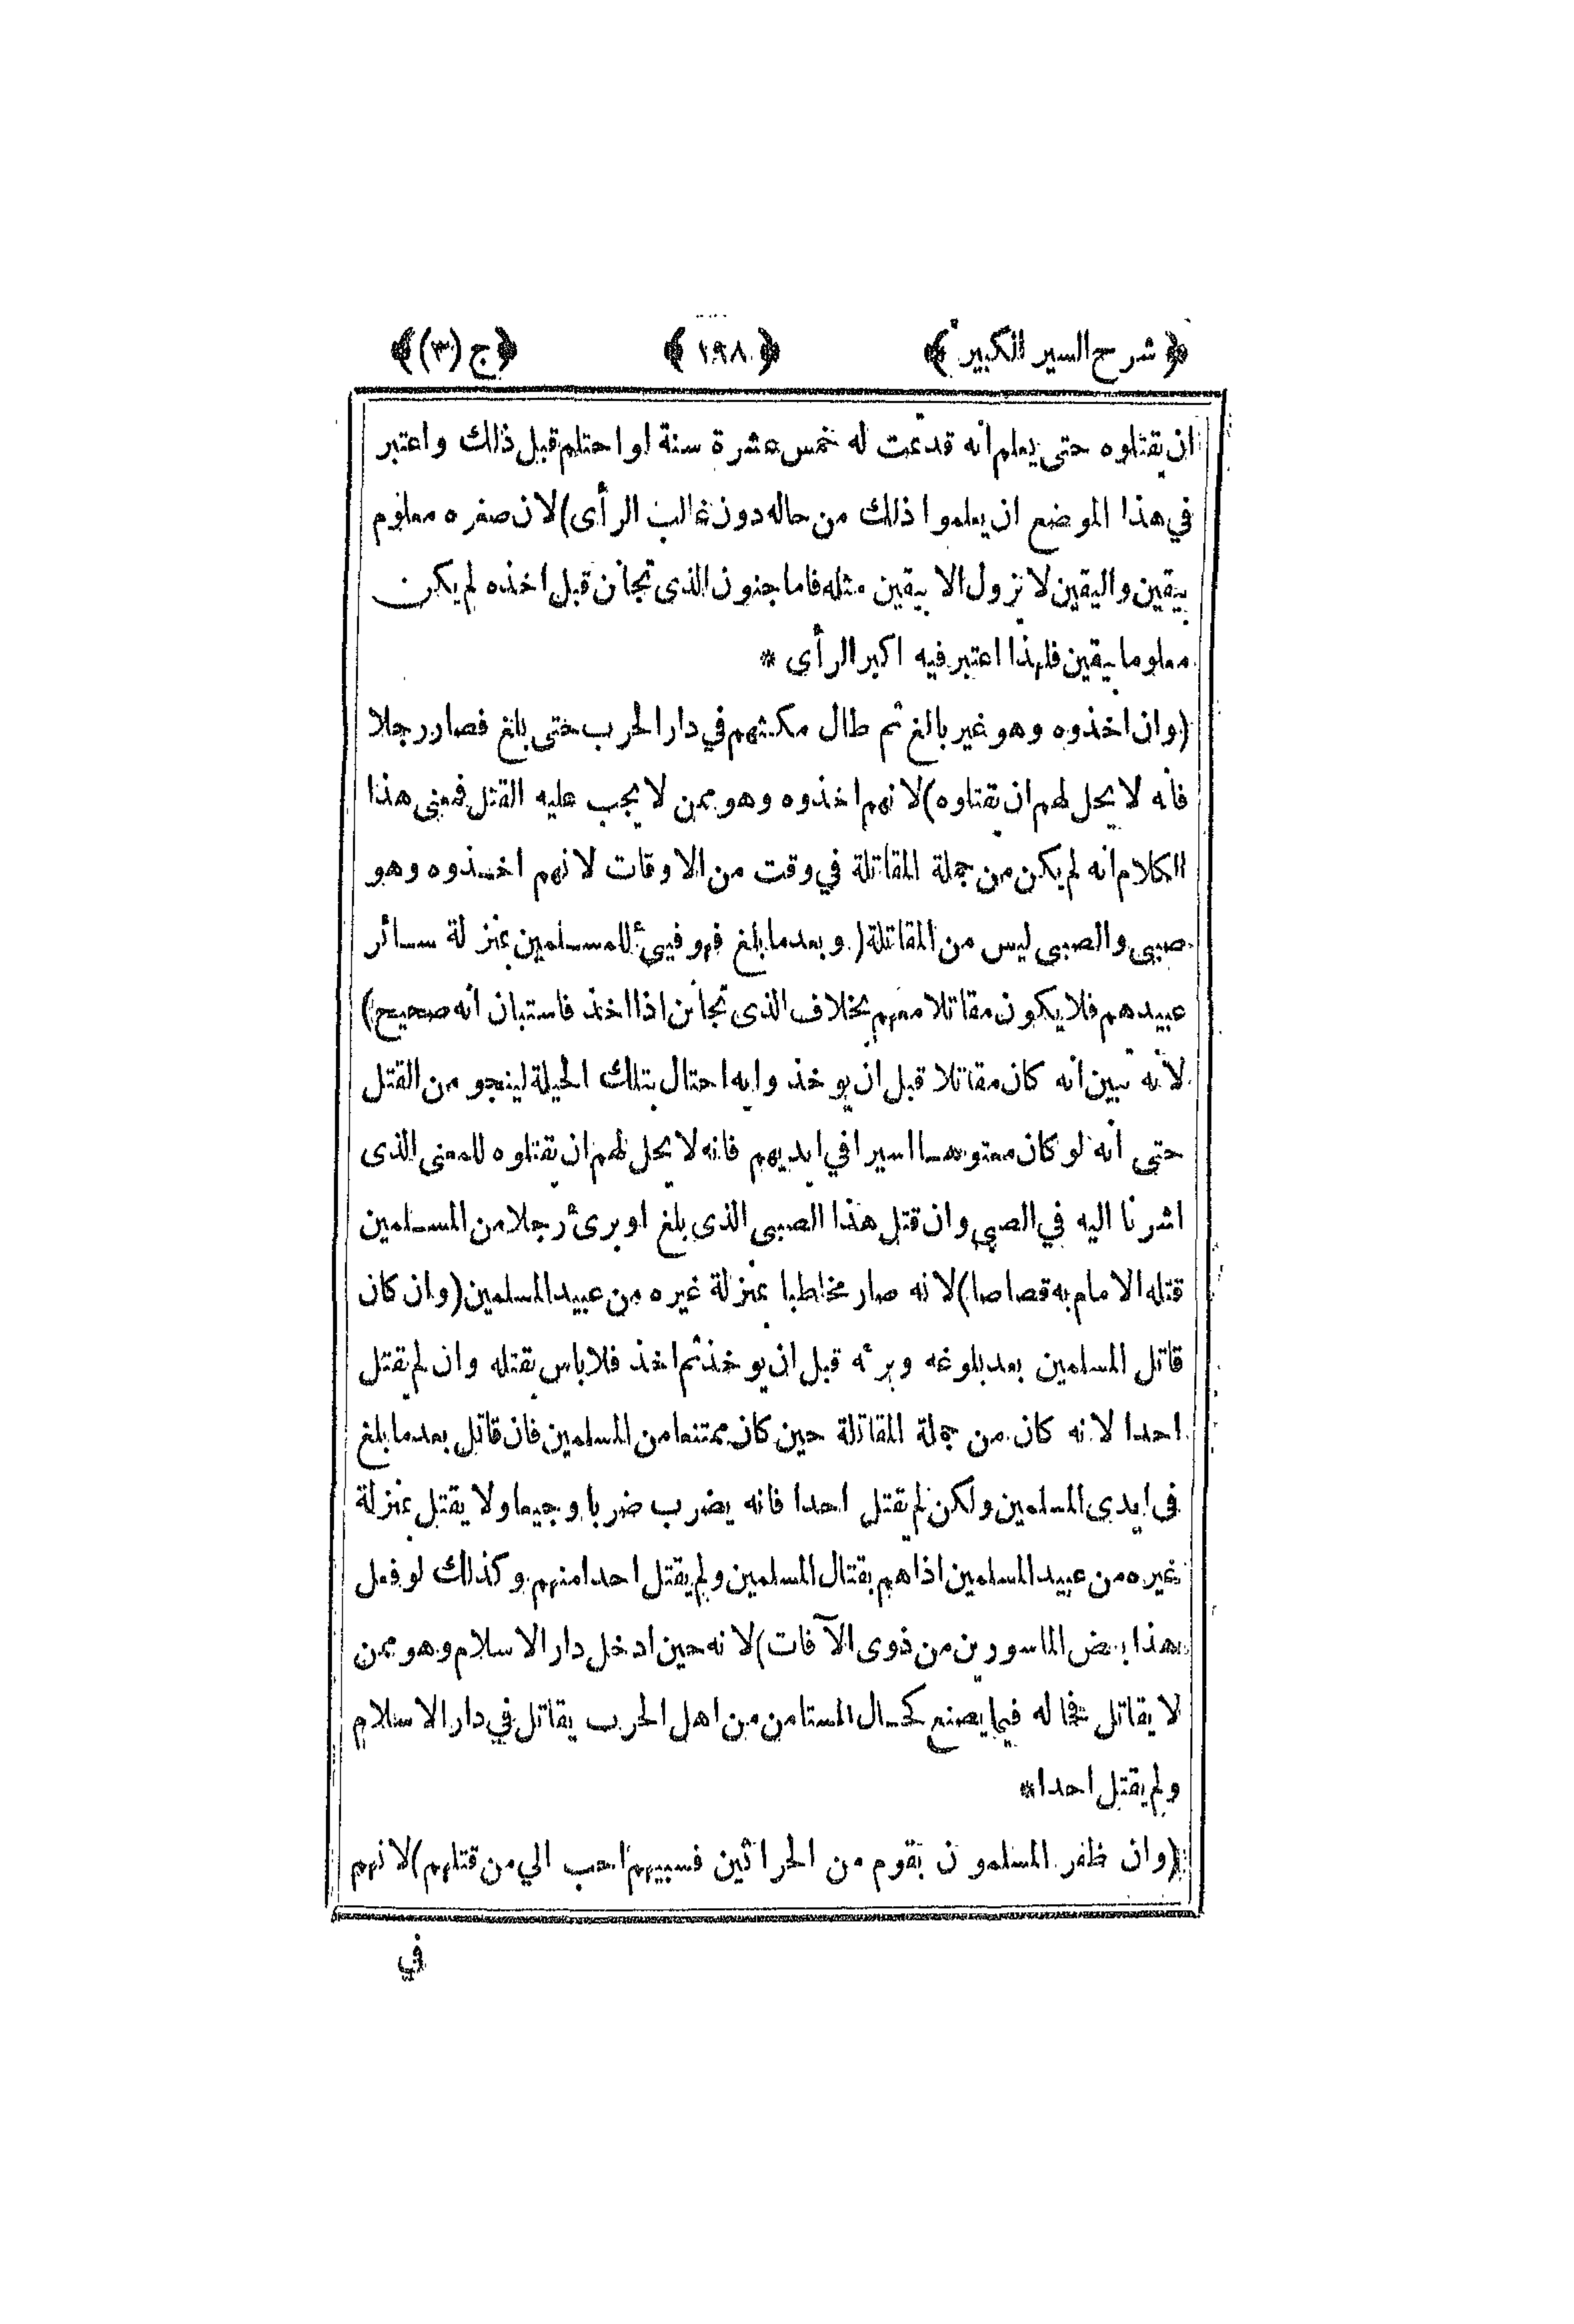 ﴿ شرح السير الكبير ﴾ ﴿ ١٩٨ ﴾ ﴿ ج (٣) ﴾
ان يقتلوه حتى يعلم انه قد تمت له خمس عشرة سنة او احتلم قبل ذلك واعتبر
في هذا الموضع ان يعلموا ذلك من حاله دون غالب الرأى) لان صغره معلوم
بيقين واليقين لا نزول الا بيقين مثله فاما جنون الذى تجأن قبل اخذه لم يكن
معلوما بيقين فلهذا اعتبر فيه اكبر الرأى *
(وان اخذوه وهو غير بالغ ثم طال مكثهم في دار الحرب حتى بلغ فصار رجلا
فأنه لا يحل لهم ان يقتلوه) لانهم اخذوه وهو ممن لا يجب عليه القتل فمعنى هذا
الكلام انه لم يكن من جملة المقاتلة في وقت من الاوقات لانهم اخذوه وهو
صبى والصبى ليس من المقاتلة (وبعد ما بلغ فهو فيئ للمسلمين بمنزلة سائر
عبيدهم فلا يكون مقاتلا معهم بخلاف الذى تجأنن اذا اخذ فاستبان انه صحيح)
لانه تبين انه كان مقاتلا قبل ان يوخذ وانه احتال بتلك الحيلة لينجو من القتل
حتى انه لو كان معتوها اسيرا في ايديهم فانه لا يحل لهم ان يقتلوه للمعنى الذى
اشرنا اليه في الصبي وان قتل هذا الصبى الذى بلغ او برئ رجلا من المسلمين
قتله الامام به قصاصا) لانه صار مخاطبا بمنزلة غيره من عبيد المسلمين (وان كان
قاتل المسلمين بعد بلوغه وبرئه قبل ان يوخذ ثم اخذ فلا باس بقتله وان لم يقتل
احدا لانه كان من جملة المقاتلة حين كان ممتنعا من المسلمين فان قاتل بعد ما بلغ
فى ايدى المسلمين ولكن لم يقتل احدا فانه يضرب ضربا وجيعا ولا يقتل بمنزلة
غيره من عبيد المسلمين اذا هم بقتال المسلمين ولم يقتل احدا منهم وكذلك لو فعل
هذا بعض الماسورين من ذوى الآفات) لانه حين ادخل دار الاسلام وهو ممن
لا يقاتل فحاله فيما يصنع كحال المستامن من اهل الحرب يقاتل في دار الاسلام
ولم يقتل احدا *
(وان ظفر المسلمون بقوم من الحراثين فسبيهم احب الي من قتلهم) لانهم
في